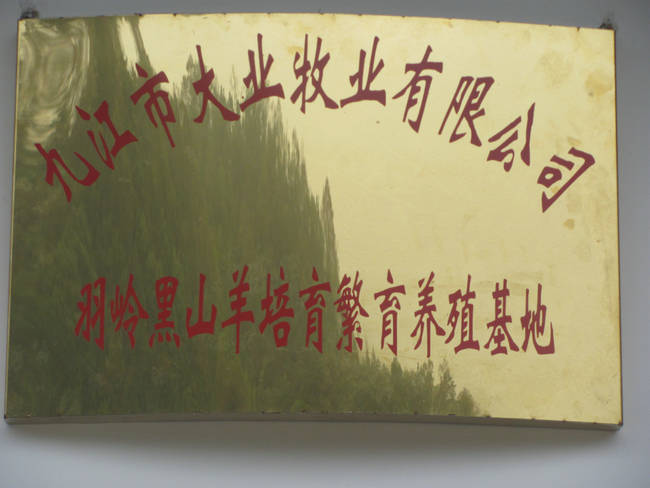 九江市大业牧业有限公司
羽岭黑山羊培育繁育养殖基地